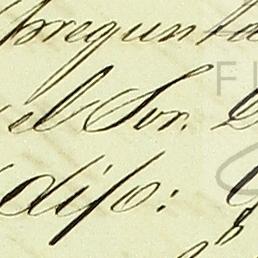 pregunta
el Sor.
dijo: